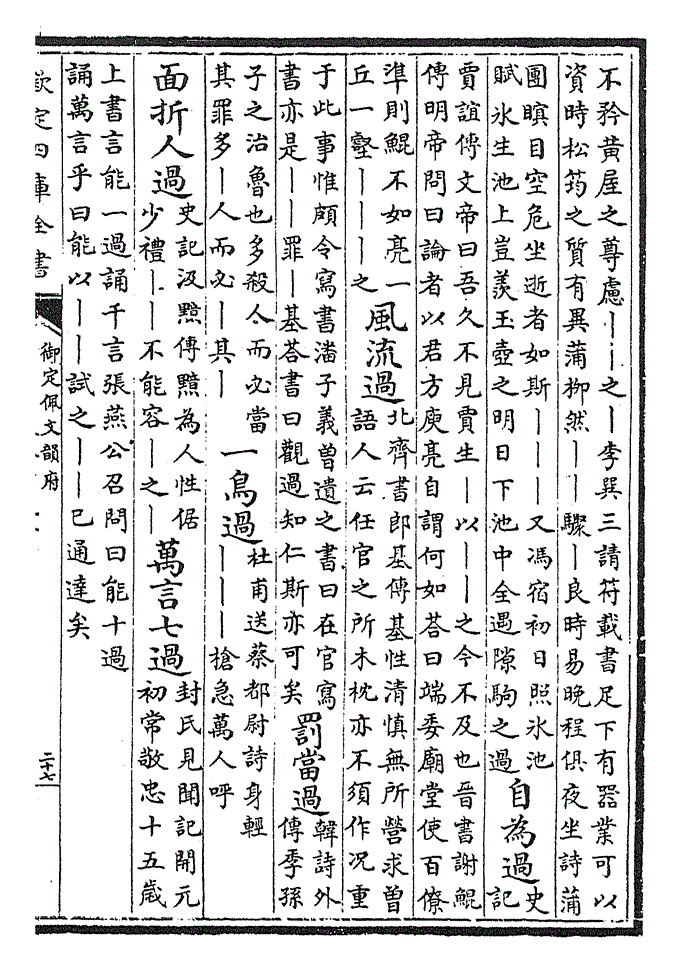 不矜黄屋之尊慮丨丨之丨李巽三請符載書足下有器業可以
資時松筠之質有異蒲栁然丨丨驟丨良時易晚程俱夜坐詩蒲
團瞑目空危坐逝者如斯丨丨丨丨又馮宿初日照氷池
賦氷生池上豈羨玉壺之明日下池中全遇隙駒之過
自為過
史
記
賈誼傳文帝曰吾久不見賈生丨以丨丨之今不及也晉書謝鯤
傳明帝問曰論者以君方庾亮自謂何如荅曰端委廟堂使百僚
準則鯤不如亮一
丘一壑丨丨丨丨之
風流過
北齊書郎基傳基性清慎無所營求曽
語人云任官之所木枕亦不須作况重
于此事惟頗令寫書潘子義曽遺之書曰在官寫
書亦是丨丨罪丨基荅書曰觀過知仁斯亦可矣
罰當過
韓詩外
傳季孫
子之治魯也多殺人而必當
其罪多丨人而必丨其丨
一鳥過
杜甫送蔡都尉詩身輕
丨丨丨槍急萬人呼
面折人過
史記汲黯傳黯為人性倨
少禮丨丨不能容丨之丨
萬言七過
封氏見聞記開元
初常敬忠十五歲
上書言能一過誦千言張燕公召問曰能十過
誦萬言乎曰能以丨丨試之丨丨已通達矣
欽定四庫全書
御定佩文韻府
二十七